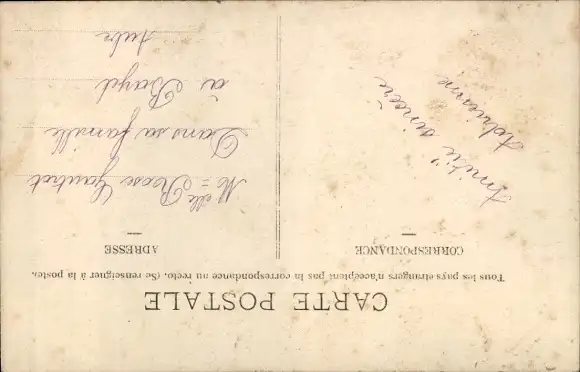 CARTE POSTALE
Tous les pays étrangers n'acceptent pas la correspondance au recto. (Se renseigner à la poste.
CORRESPONDANCE
Amitié sincère
Adrienne
ADRESSE
Melle Rose Gautrot
Dans sa famille
à Bayel
Aube